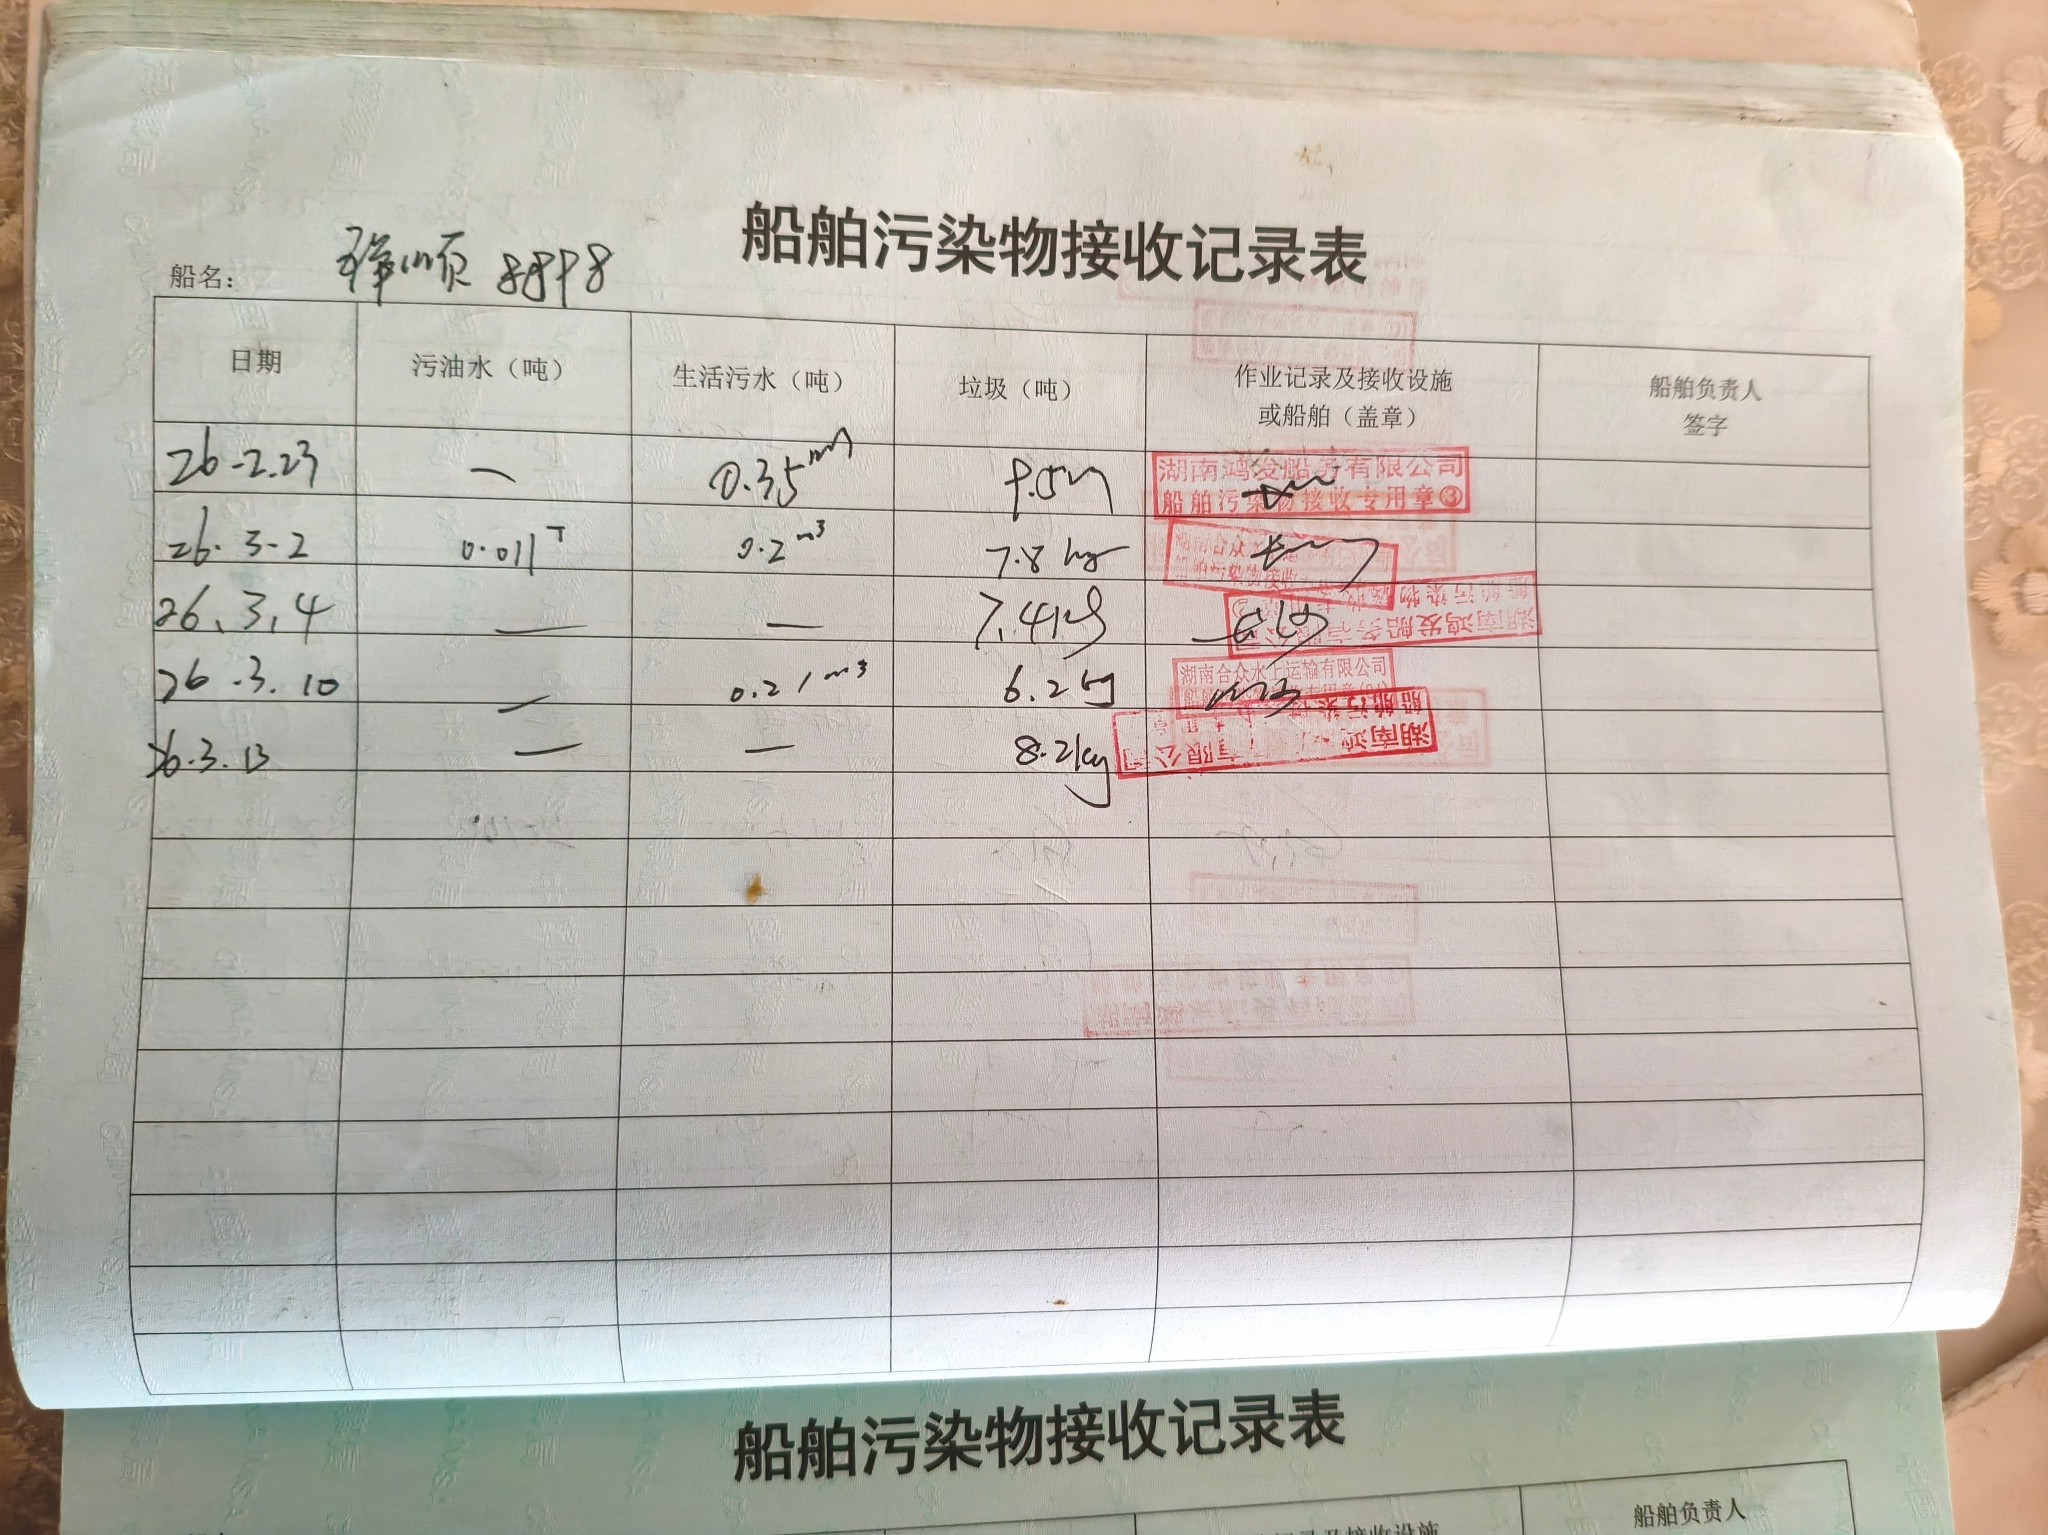 船舶污染物接收记录表
船名： 顺 8898
日期 污油水（吨） 生活污水（吨） 垃圾（吨） 作业记录及接收设施或船舶（盖章） 船舶负责人签字
26-2.23 — 0.35 9.5
湖南鸿发船务有限公司
船舶污染物接收专用章③
26.3-2 0.011T 0.2m³ 7.8kg
湖南合众
船舶污染物接收
26.3.4 — — 7.4kg
湖南鸿发船务有限公司
船舶污染物接收
26.3.10 — 0.21m³ 6.2kg
湖南合众水上运输有限公司
26.3.13 — — 8.2kg
湖南鸿 有限公司
船舶污染
船舶污染物接收记录表
记录及接收设施
船舶负责人